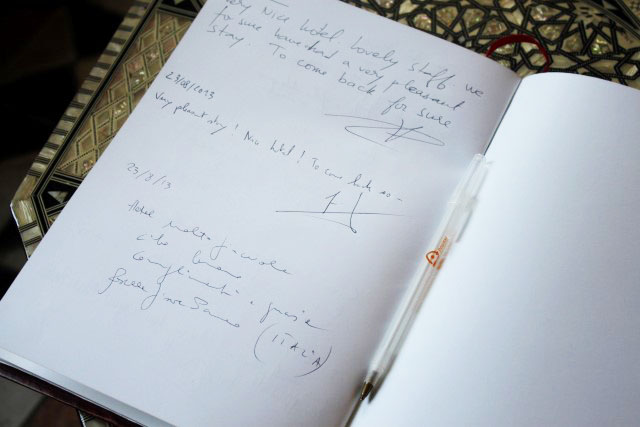 Very Nice hotel, lovely staff, we
for sure have had a very pleasant
stay. To come back for sure
23/08/2013
Very pleasant stay! Nice hotel! To come back
23/8/13
Hotel
cibo buono
complimenti e grazie
(ITALIA)